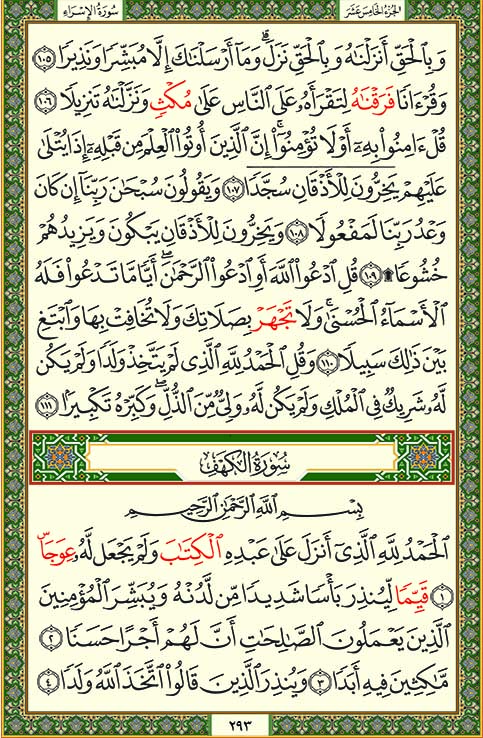 الجزء الخامس عشر
سورة الإسراء
وَبِالْحَقِّ أَنزَلْنَاهُ وَبِالْحَقِّ نَزَلَ ۗ وَمَا أَرْسَلْنَاكَ إِلَّا مُبَشِّرًا وَنَذِيرًا ١٠٥
وَقُرْآنًا فَرَقْنَاهُ لِتَقْرَأَهُ عَلَى النَّاسِ عَلَىٰ مُكْثٍ وَنَزَّلْنَاهُ تَنزِيلًا ١٠٦
قُلْ آمِنُوا بِهِ أَوْ لَا تُؤْمِنُوا ۚ إِنَّ الَّذِينَ أُوتُوا الْعِلْمَ مِن قَبْلِهِ إِذَا يُتْلَىٰ
عَلَيْهِمْ يَخِرُّونَ لِلْأَذْقَانِ سُجَّدًا ١٠٧ وَيَقُولُونَ سُبْحَانَ رَبِّنَا إِن كَانَ
وَعْدُ رَبِّنَا لَمَفْعُولًا ١٠٨ وَيَخِرُّونَ لِلْأَذْقَانِ يَبْكُونَ وَيَزِيدُهُمْ
خُشُوعًا ۩ ١٠٩ قُلِ ادْعُوا اللَّهَ أَوِ ادْعُوا الرَّحْمَٰنَ ۖ أَيًّا مَّا تَدْعُوا فَلَهُ
الْأَسْمَاءُ الْحُسْنَىٰ ۚ وَلَا تَجْهَرْ بِصَلَاتِكَ وَلَا تُخَافِتْ بِهَا وَابْتَغِ
بَيْنَ ذَٰلِكَ سَبِيلًا ١١٠ وَقُلِ الْحَمْدُ لِلَّهِ الَّذِي لَمْ يَتَّخِذْ وَلَدًا وَلَمْ يَكُن
لَّهُ شَرِيكٌ فِي الْمُلْكِ وَلَمْ يَكُن لَّهُ وَلِيٌّ مِّنَ الذُّلِّ ۖ وَكَبِّرْهُ تَكْبِيرًا ١١١
سُورَةُ الْكَهْفِ
بِسْمِ اللَّهِ الرَّحْمَٰنِ الرَّحِيمِ
الْحَمْدُ لِلَّهِ الَّذِي أَنزَلَ عَلَىٰ عَبْدِهِ الْكِتَابَ وَلَمْ يَجْعَل لَّهُ عِوَجًا ۜ
١ قَيِّمًا لِّيُنذِرَ بَأْسًا شَدِيدًا مِّن لَّدُنْهُ وَيُبَشِّرَ الْمُؤْمِنِينَ
الَّذِينَ يَعْمَلُونَ الصَّالِحَاتِ أَنَّ لَهُمْ أَجْرًا حَسَنًا ٢
مَّاكِثِينَ فِيهِ أَبَدًا ٣ وَيُنذِرَ الَّذِينَ قَالُوا اتَّخَذَ اللَّهُ وَلَدًا ٤
٢٩٣